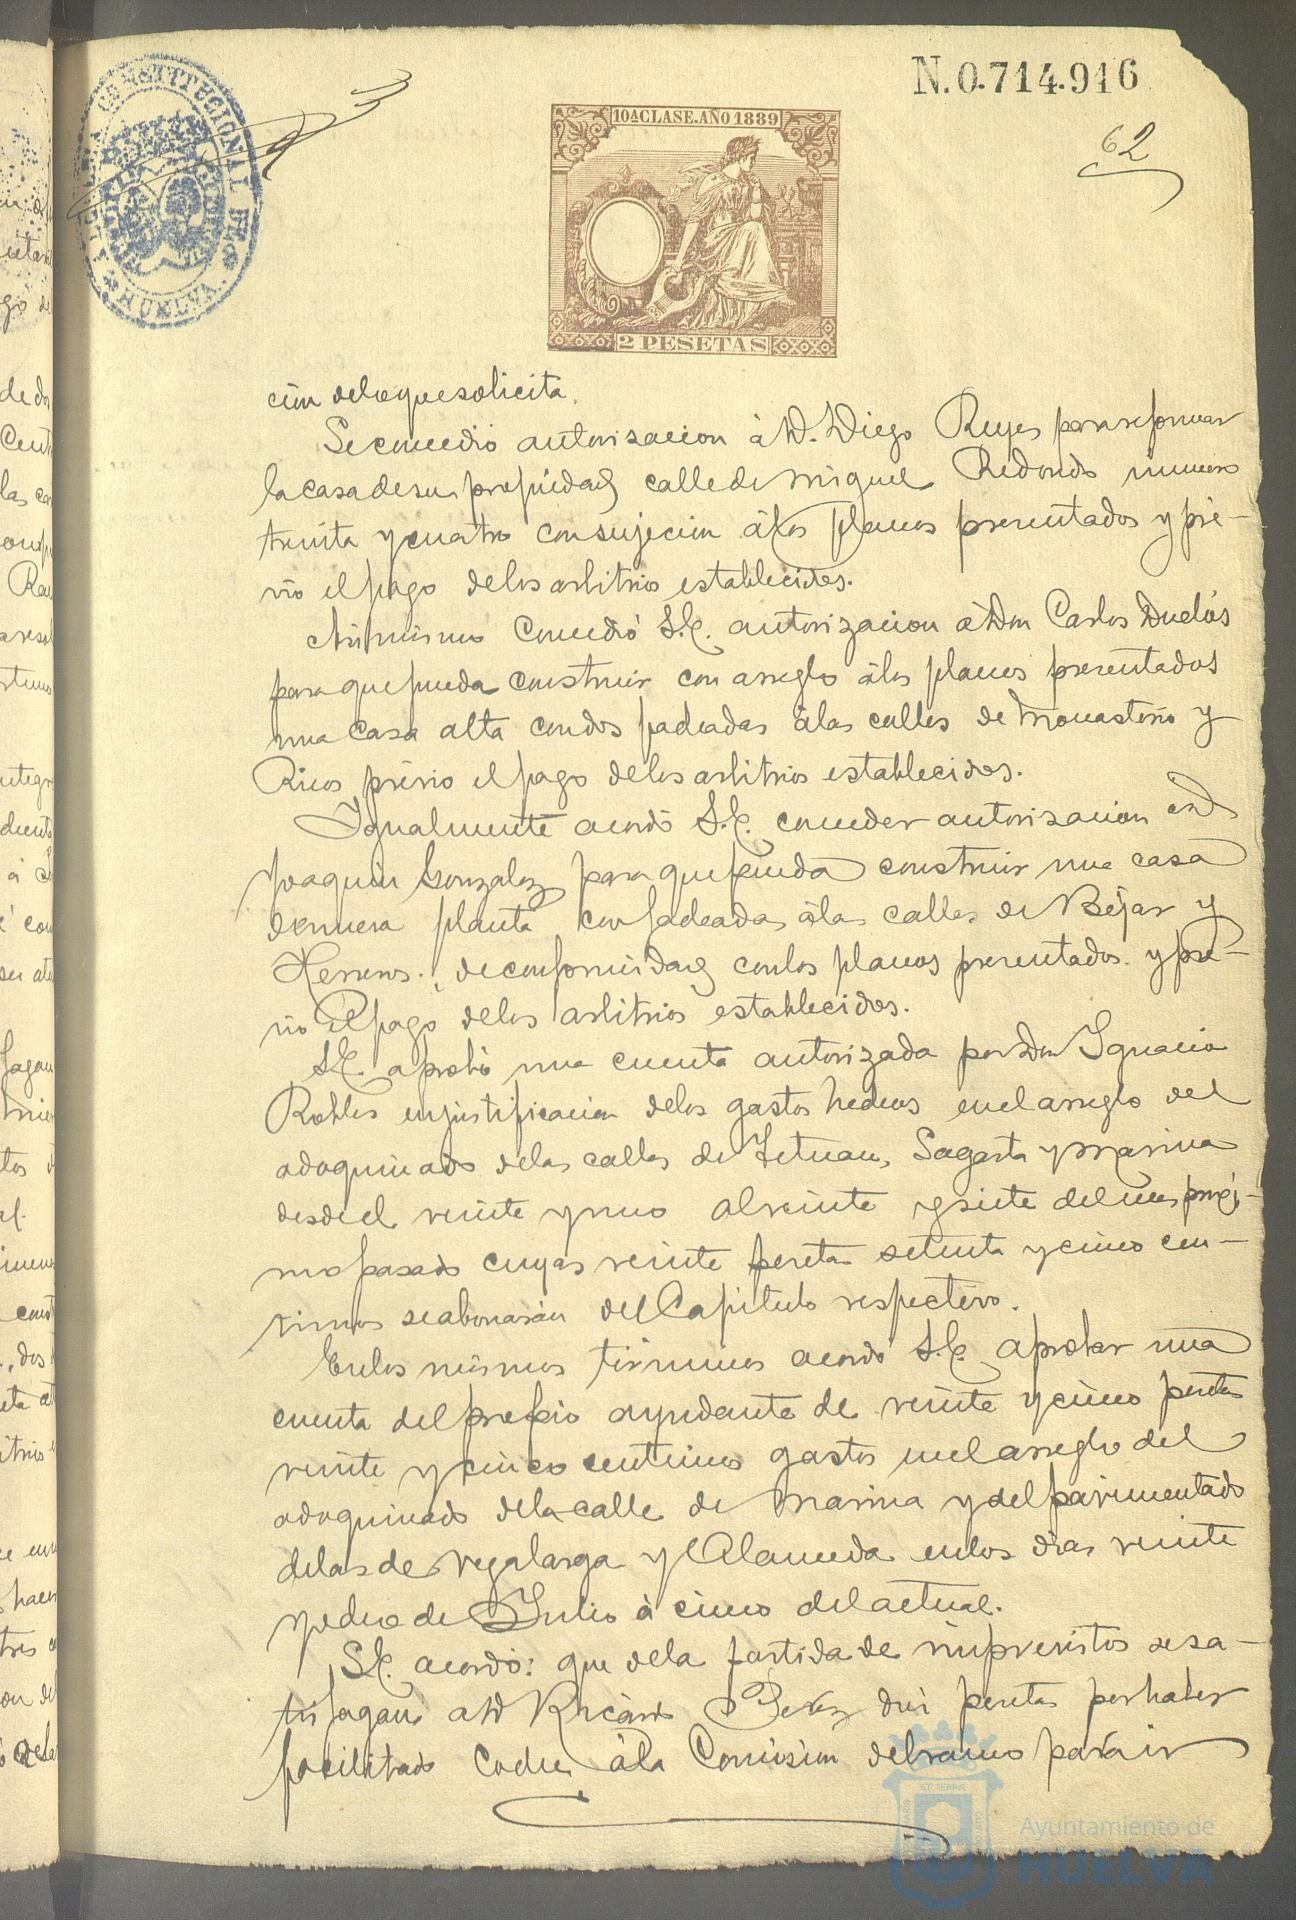 N. 0.714.916
10ª CLASE. AÑO 1889
62
ALCALDIA CONSTITUCIONAL DE
HUELVA
2 PESETAS
cion delo que solicita.
Se concedió autorisacion à D. Diego Reyes para reformar
la casa de su propiedad calle de Miguel Redondo número
treinta y cuatro con sujecion á los planos presentados y pré-
vio el pago de los arbitrios establecidos.
Asi mismo concedió S.E. autorizacion á Don Carlos Duclós
para que pueda construir con arreglo á los planos presentados
una casa alta con dos fachadas á las calles de Monasterio y
Ricos prévio el pago de los arbitrios establecidos.
Igualmente acordó S.E. conceder autorizacion
Joaquin Gonzalez para que pueda construir una casa
de nueva planta con fachadas á las calles de Béjar y
Herreros, de conformidad con los planos presentados y pré-
vio el pago de los arbitrios establecidos.
S.E. aprobó una cuenta autorizada por Don Ignacio
Robles en justificacion de los gastos hechos en el arreglo del
adoquinado de las calles de Tetuan, Sagasta y Marina
desde el veinte y uno al veinte y siete del mes proxi-
mo pasado cuyas veinte pesetas setenta y cinco cen-
timos se abonarán del Capitulo respectivo.
En los mismos términos acordó S.E. aprobar una
cuenta del propio ayudante de veinte y cinco pesetas
veinte y cinco centimos gastos en el arreglo del
adoquinado de la calle de Marina y del pavimentado
de las de Vegalarga y Alameda en los dias veinte
y ocho de Julio á cinco del actual.
S.E. acordó: que de la partida de imprevistos se sa-
tisfagan a D Ricardo Perez diez pesetas por haber
facilitado coche á la Comision del ramo para ir
Ayuntamiento de
HUELVA